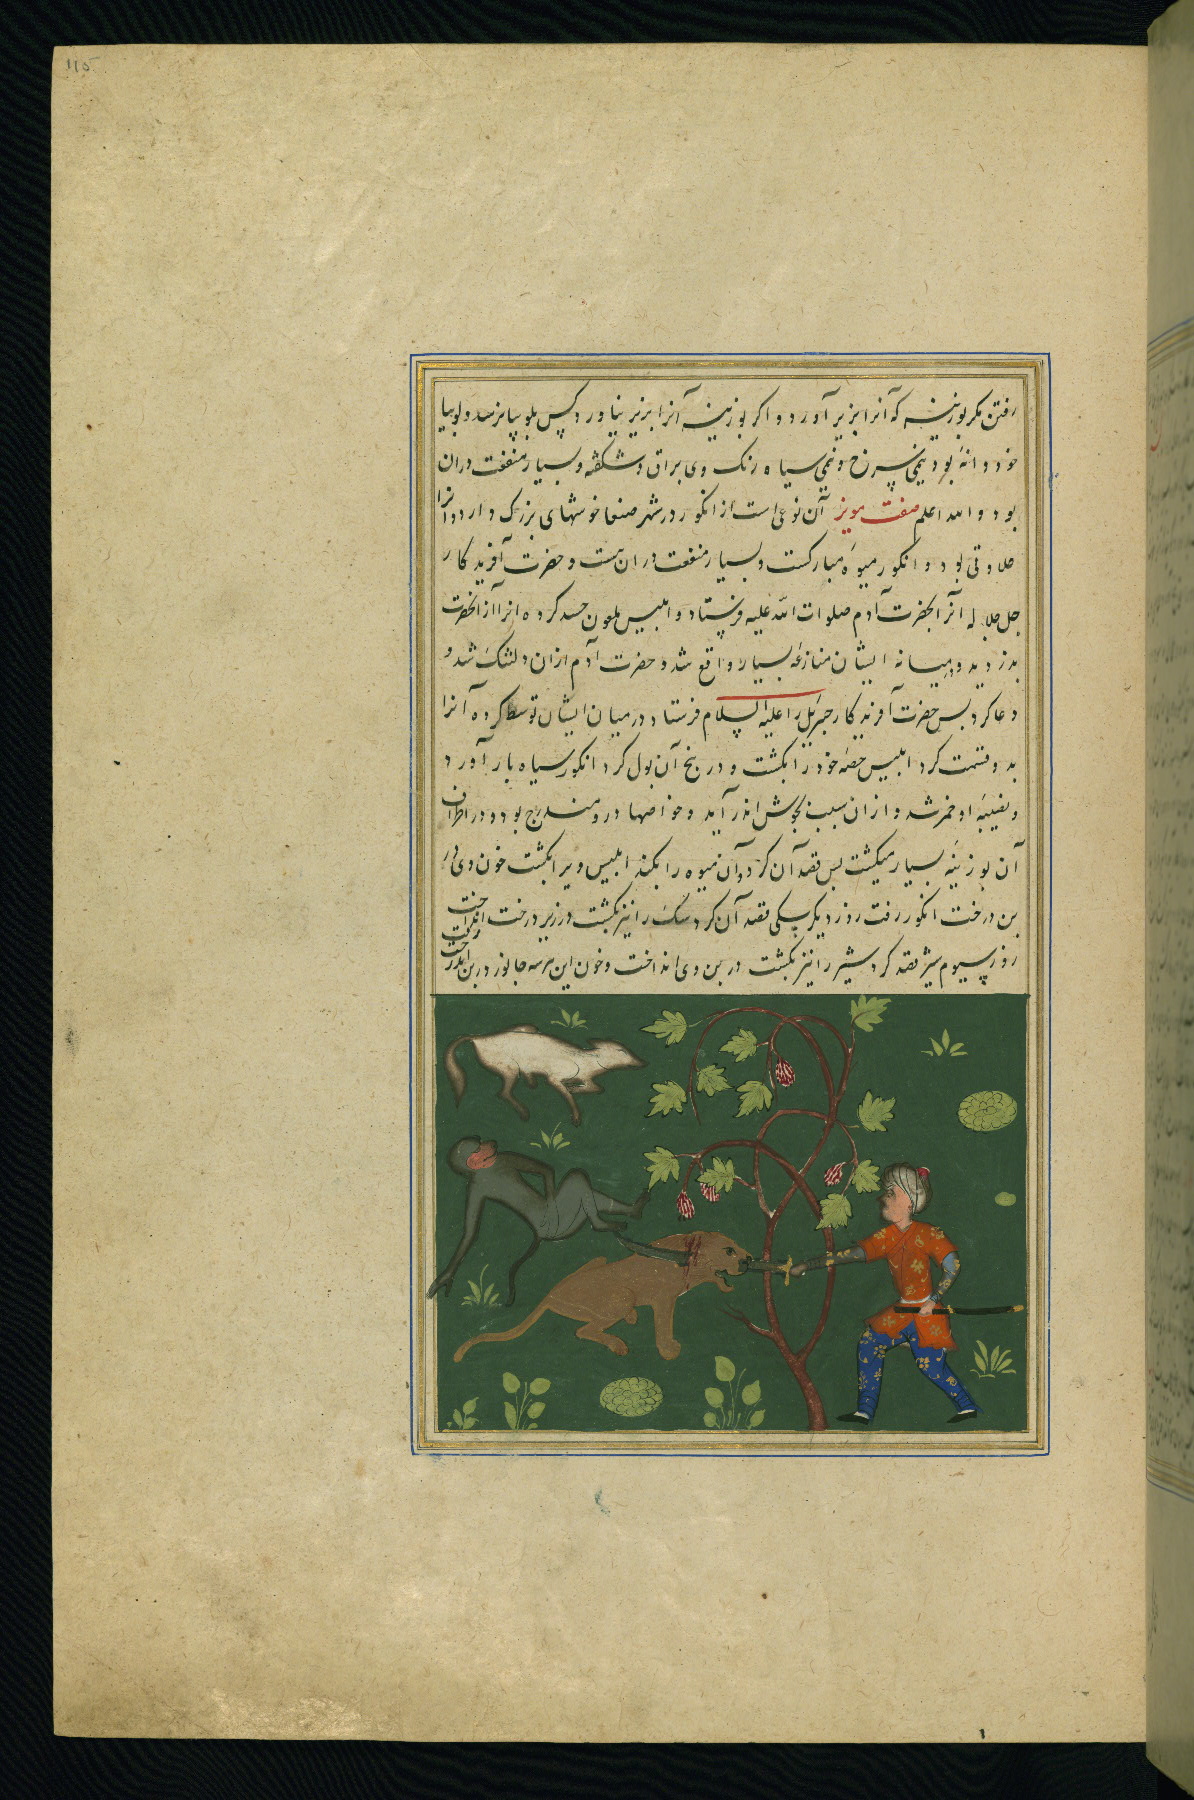 115
رفتن مکر بوزینه که آنرا بزیر آورد و اکر بوزینه آنرا بزیر نیاورد کس بلوبیا نرسد و لوبیا
خود دانهٔ بود نیمی سرخ و نیمی سیاه رنک وی براق و شکفته و بسیار منفعت دران
بود والله اعلم صفت مویز آن نوعی است از انکور در شهر صنعا خوشهای بزرک دارد و آنرا
حلاوتی بود و انکور میوهٔ مبارکست و بسیار منفعت دران هست و حضرت آفریدکار
جل جلاله آنرا بحضرت آدم صلوات الله علیه فرستاد و ابلیس ملعون حسد کرده آنرا از انحضرت
بدزدید و در میانه ایشان منازعهٔ بسیار واقع شد و حضرت آدم ازان دلتنک شد و
دعا کرد بس حضرت آفریدکار جبرئیل را علیه السلام فرستاد در میان ایشان توسط کرده آنرا
بدو قسمت کرد ابلیس حصهٔ خود را بکشت و در بیخ آن بول کرد انکور سیاه بار آورد
و نصیبهٔ او خمر شد و ازان سبب بجوش اندر آید و خواصها درو مندرج بود و در اطراف
آن بوزینه بسیار میکشت بس قصد آن کرد و آن میوه را بکند ابلیس ویرا بکشت خون وی در
بن درخت انکور رفت روز دیکر سکی قصد آن کرد سک را نیز بکشت در زیر درخت انداخت
روز سیوم شیر قصد کرد شیر را نیز بکشت در بن وی انداخت و خون این هر سه جانور در بن آن درخت رفت